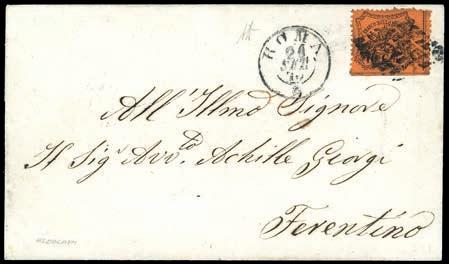 ROMA
24
All' Illmo Signore
Il Sigr Avv.to Achille Giorgi
Ferentino